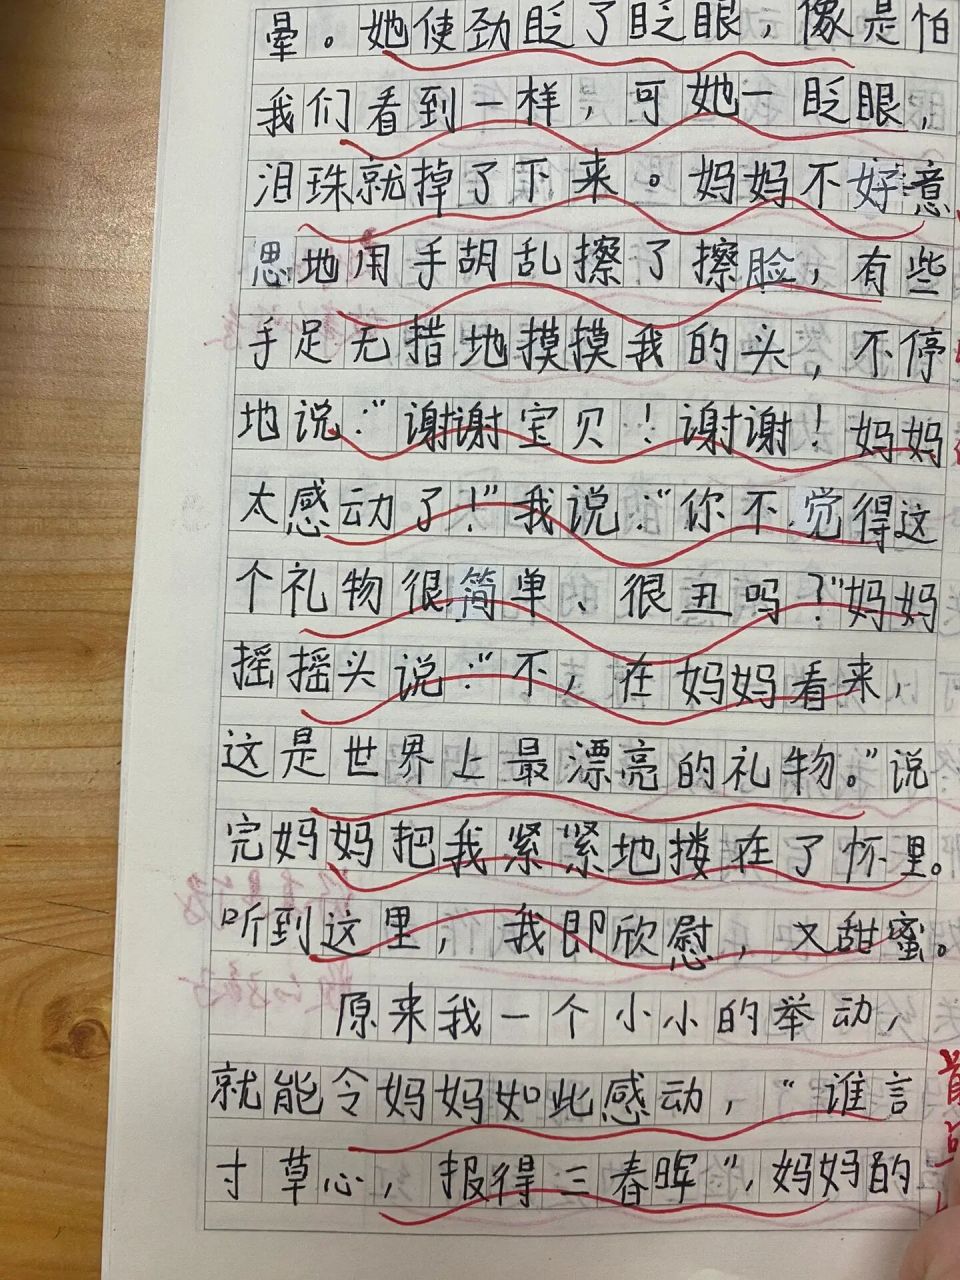 晕。她使劲眨了眨眼，像是怕
我们看到一样，可她一眨眼，
泪珠就掉了下来。妈妈不好意
思地用手胡乱擦了擦脸，有些
手足无措地摸摸我的头，不停
地说：“谢谢宝贝！谢谢！妈妈
太感动了！”我说：“你不觉得这
个礼物很简单、很丑吗？”妈妈
摇摇头说：“不，在妈妈看来，
这是世界上最漂亮的礼物。”说
完妈妈把我紧紧地搂在了怀里。
听到这里，我即欣慰，又甜蜜。
原来我一个小小的举动，
就能令妈妈如此感动，“谁言
寸草心，报得三春晖”，妈妈的